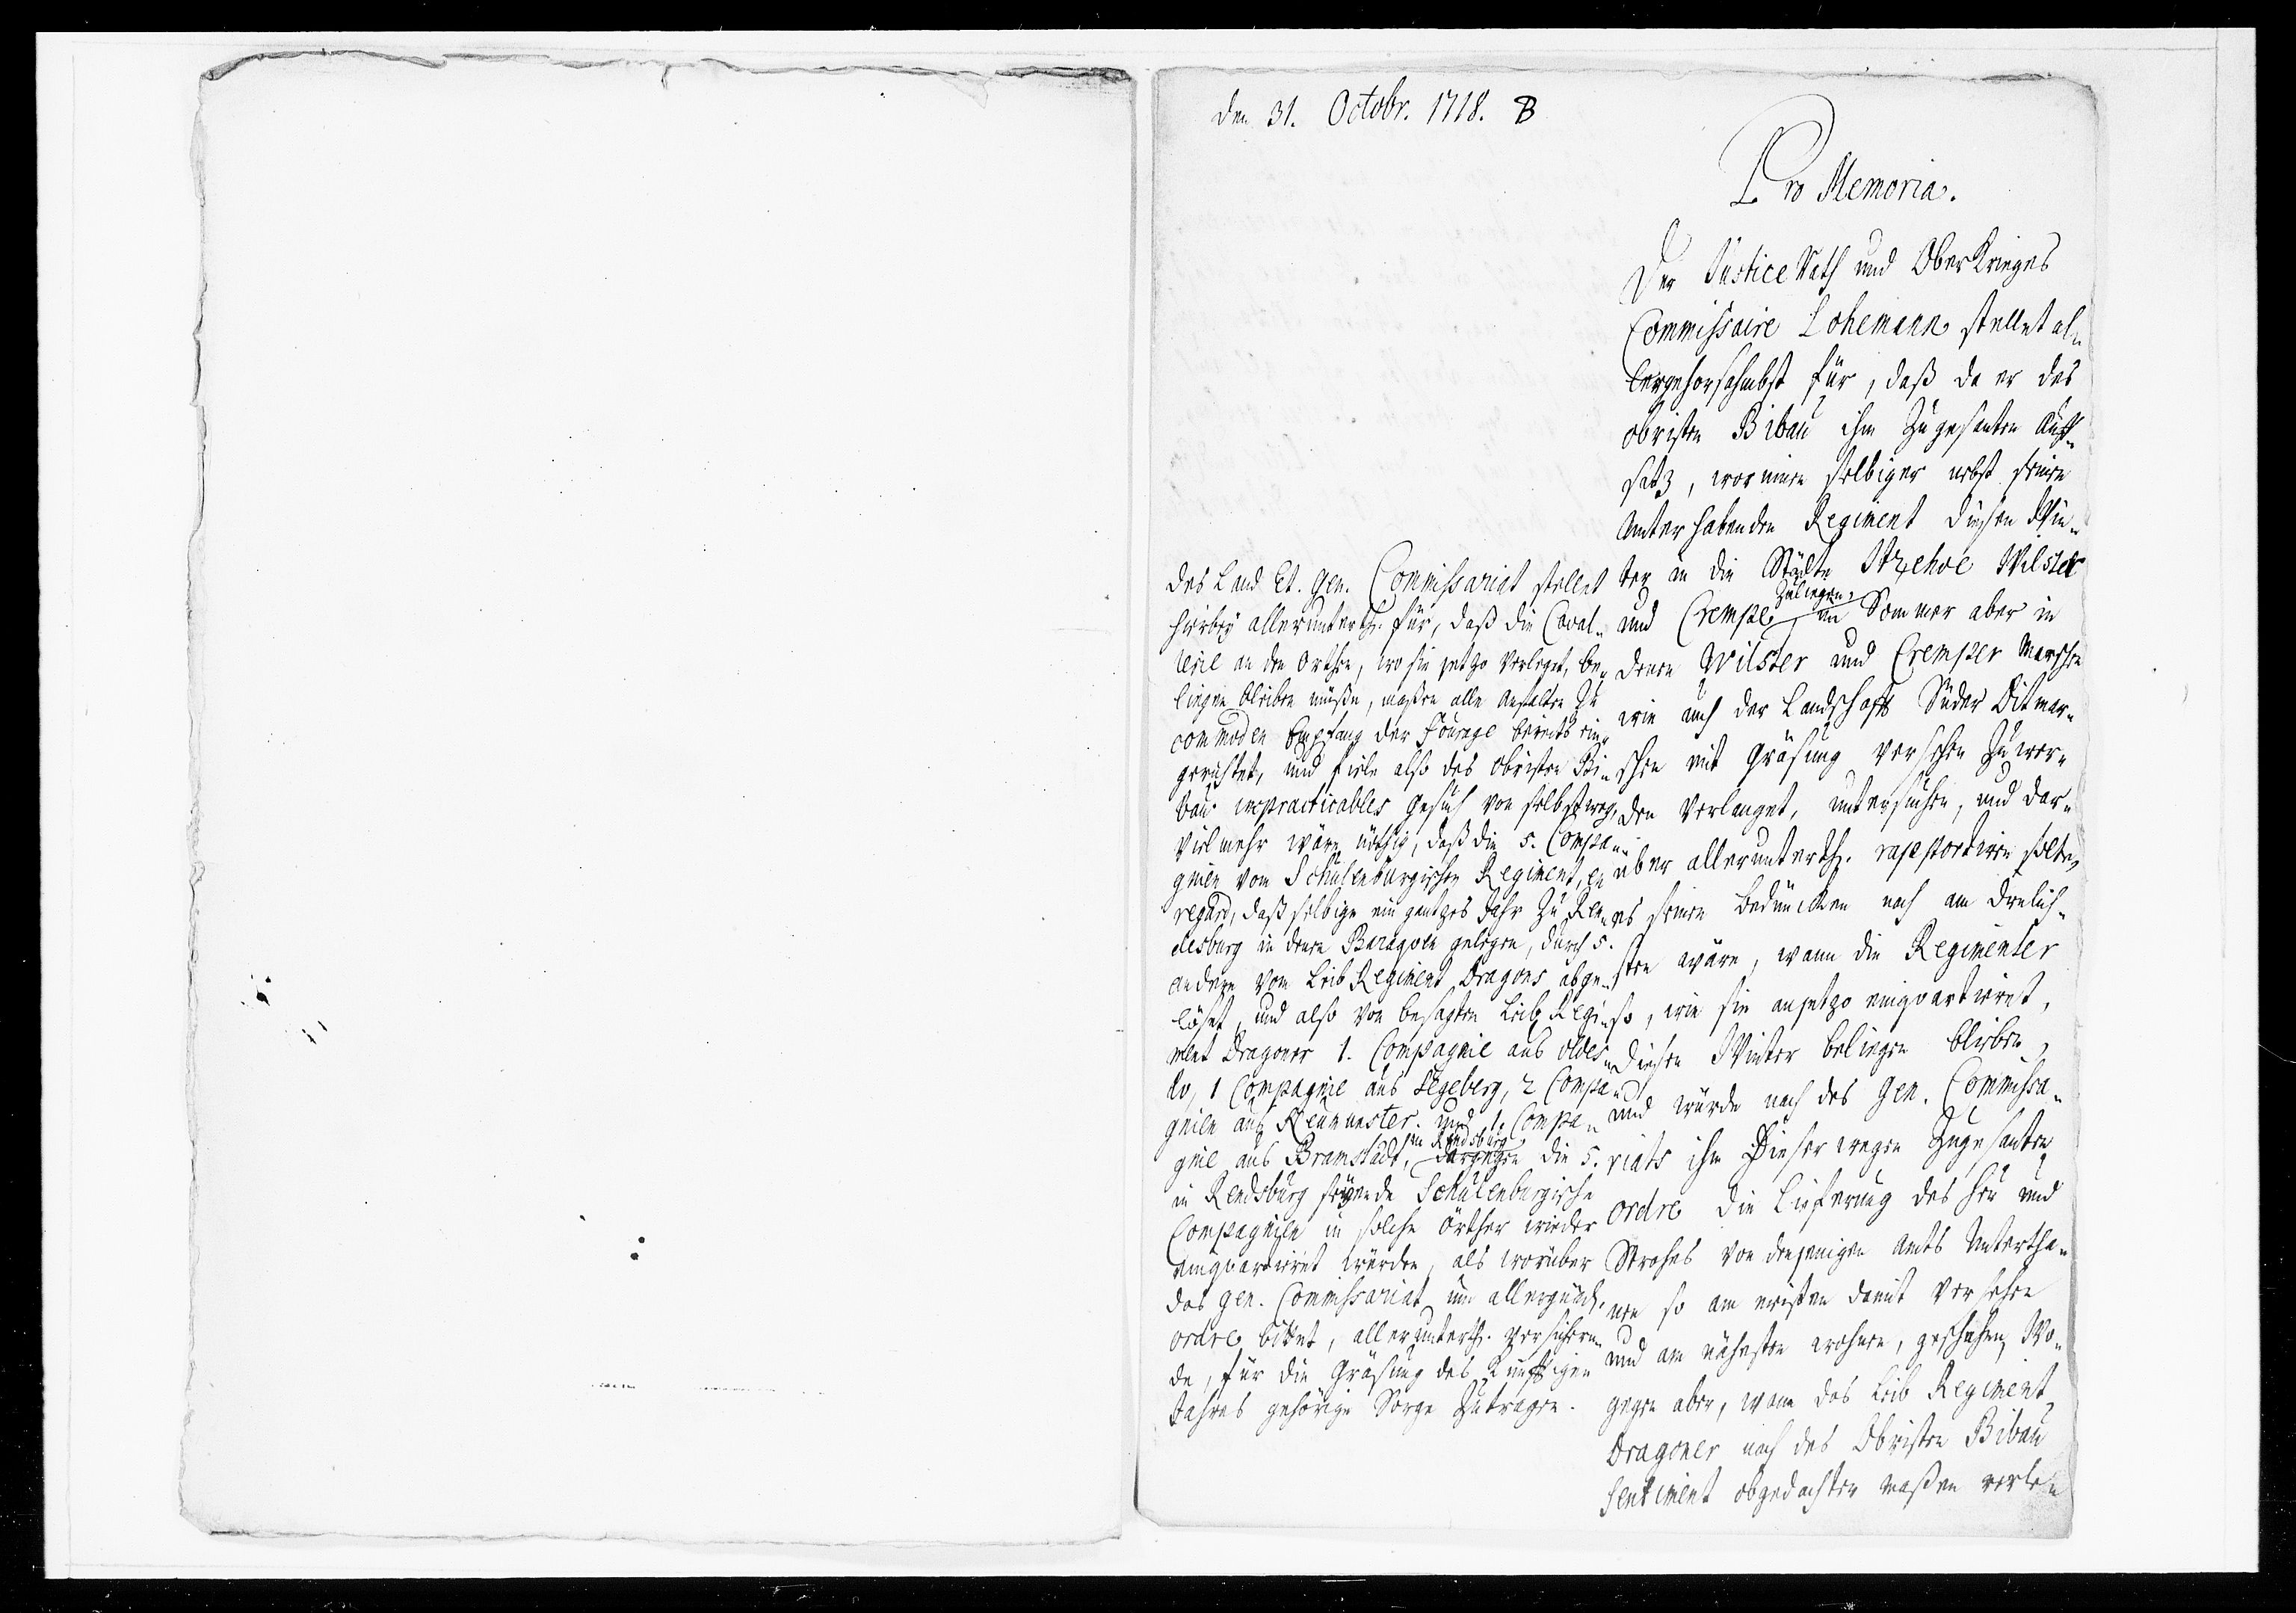 den 31. Octobr. 1718. B
Pro Memoria.
Der Justice Rath und Ober Krieges
Commissaire Lohemann stellet al-
lergehorsahmbst für, daß da er des
Obristen Bibau ihm zugesandten Auff-
satz, worinnen selbiger nebst seinen
unterhabenden Regiment diesen Win-
ter in die Städte Itzehoe Wilster
und Crempe zuliegen, im Sommer aber in
denen Wilster und Cremper Marschen
wie auch der Landschafft Süder Ditmar-
schen mit Gräsung versehen zu wer-
den verlanget, untersuchen, und dar-
über allerunterth. rapportiren solte,
es seinen bedüncken nach am dienlich-
sten wäre, wann die Regimenter
so, wie sie anjetzo einquartiret,
diesen Winter beliegen blieben,
und würde nach des Gen. Commissa-
riats ihm dieserwegen zugesandten
ordre die Lieferung des Heu und
Strohes von denjenigen Amts Untertha-
nen so am meisten damit versehen
und am nähesten wohnen, geschehen, Wo-
gegen aber, wann das Leib Regiment
Dragoner nach des Obristen Bibau
Sentiment obgedachter maßen verle-
Das Land Et. Gen. Commissariat stellet
hierbey allerunterth. für, daß die Caval-
lerie an den Orthen, wo sie jetzo verleget, be-
liegen bleiben müße, maßen alle Anstalten zu
commoden Empfang der Fourage bereits ein-
gerichtet, und fiele also des Obristen Bi-
bau impracticables Gesuch von selbst weg,
Vielmehr wäre nöthig, daß die 5. Compa-
gnien vom Schulenburgischen Regiment, en
regard, daß selbige ein gantzes Jahr zu Ren-
desburg in denen Baraquen gelegen, durch 5.
andere vom Leib Regiment Dragons abge-
löset, und also von besagten Leib Regi-
ment Dragoner 1. Compagnie aus Oldes-
lo, 1 Compagnie aus Segeberg, 2 Compa-
gnien aus Neumunster und 1. Compa-
gnie aus Bramstädt, in Rendsburg dargegen die 5.
in Rendsburg seyende Schulenburgische
Compagnien in solche Örther wieder
einquartiret würden, als worüber
das Gen. Commissariat um allergnäd.
ordre bittet, allerunterth. versichern-
de, für die Gräsung des künfftigen
Jahres gehörige Sorge zutragen.